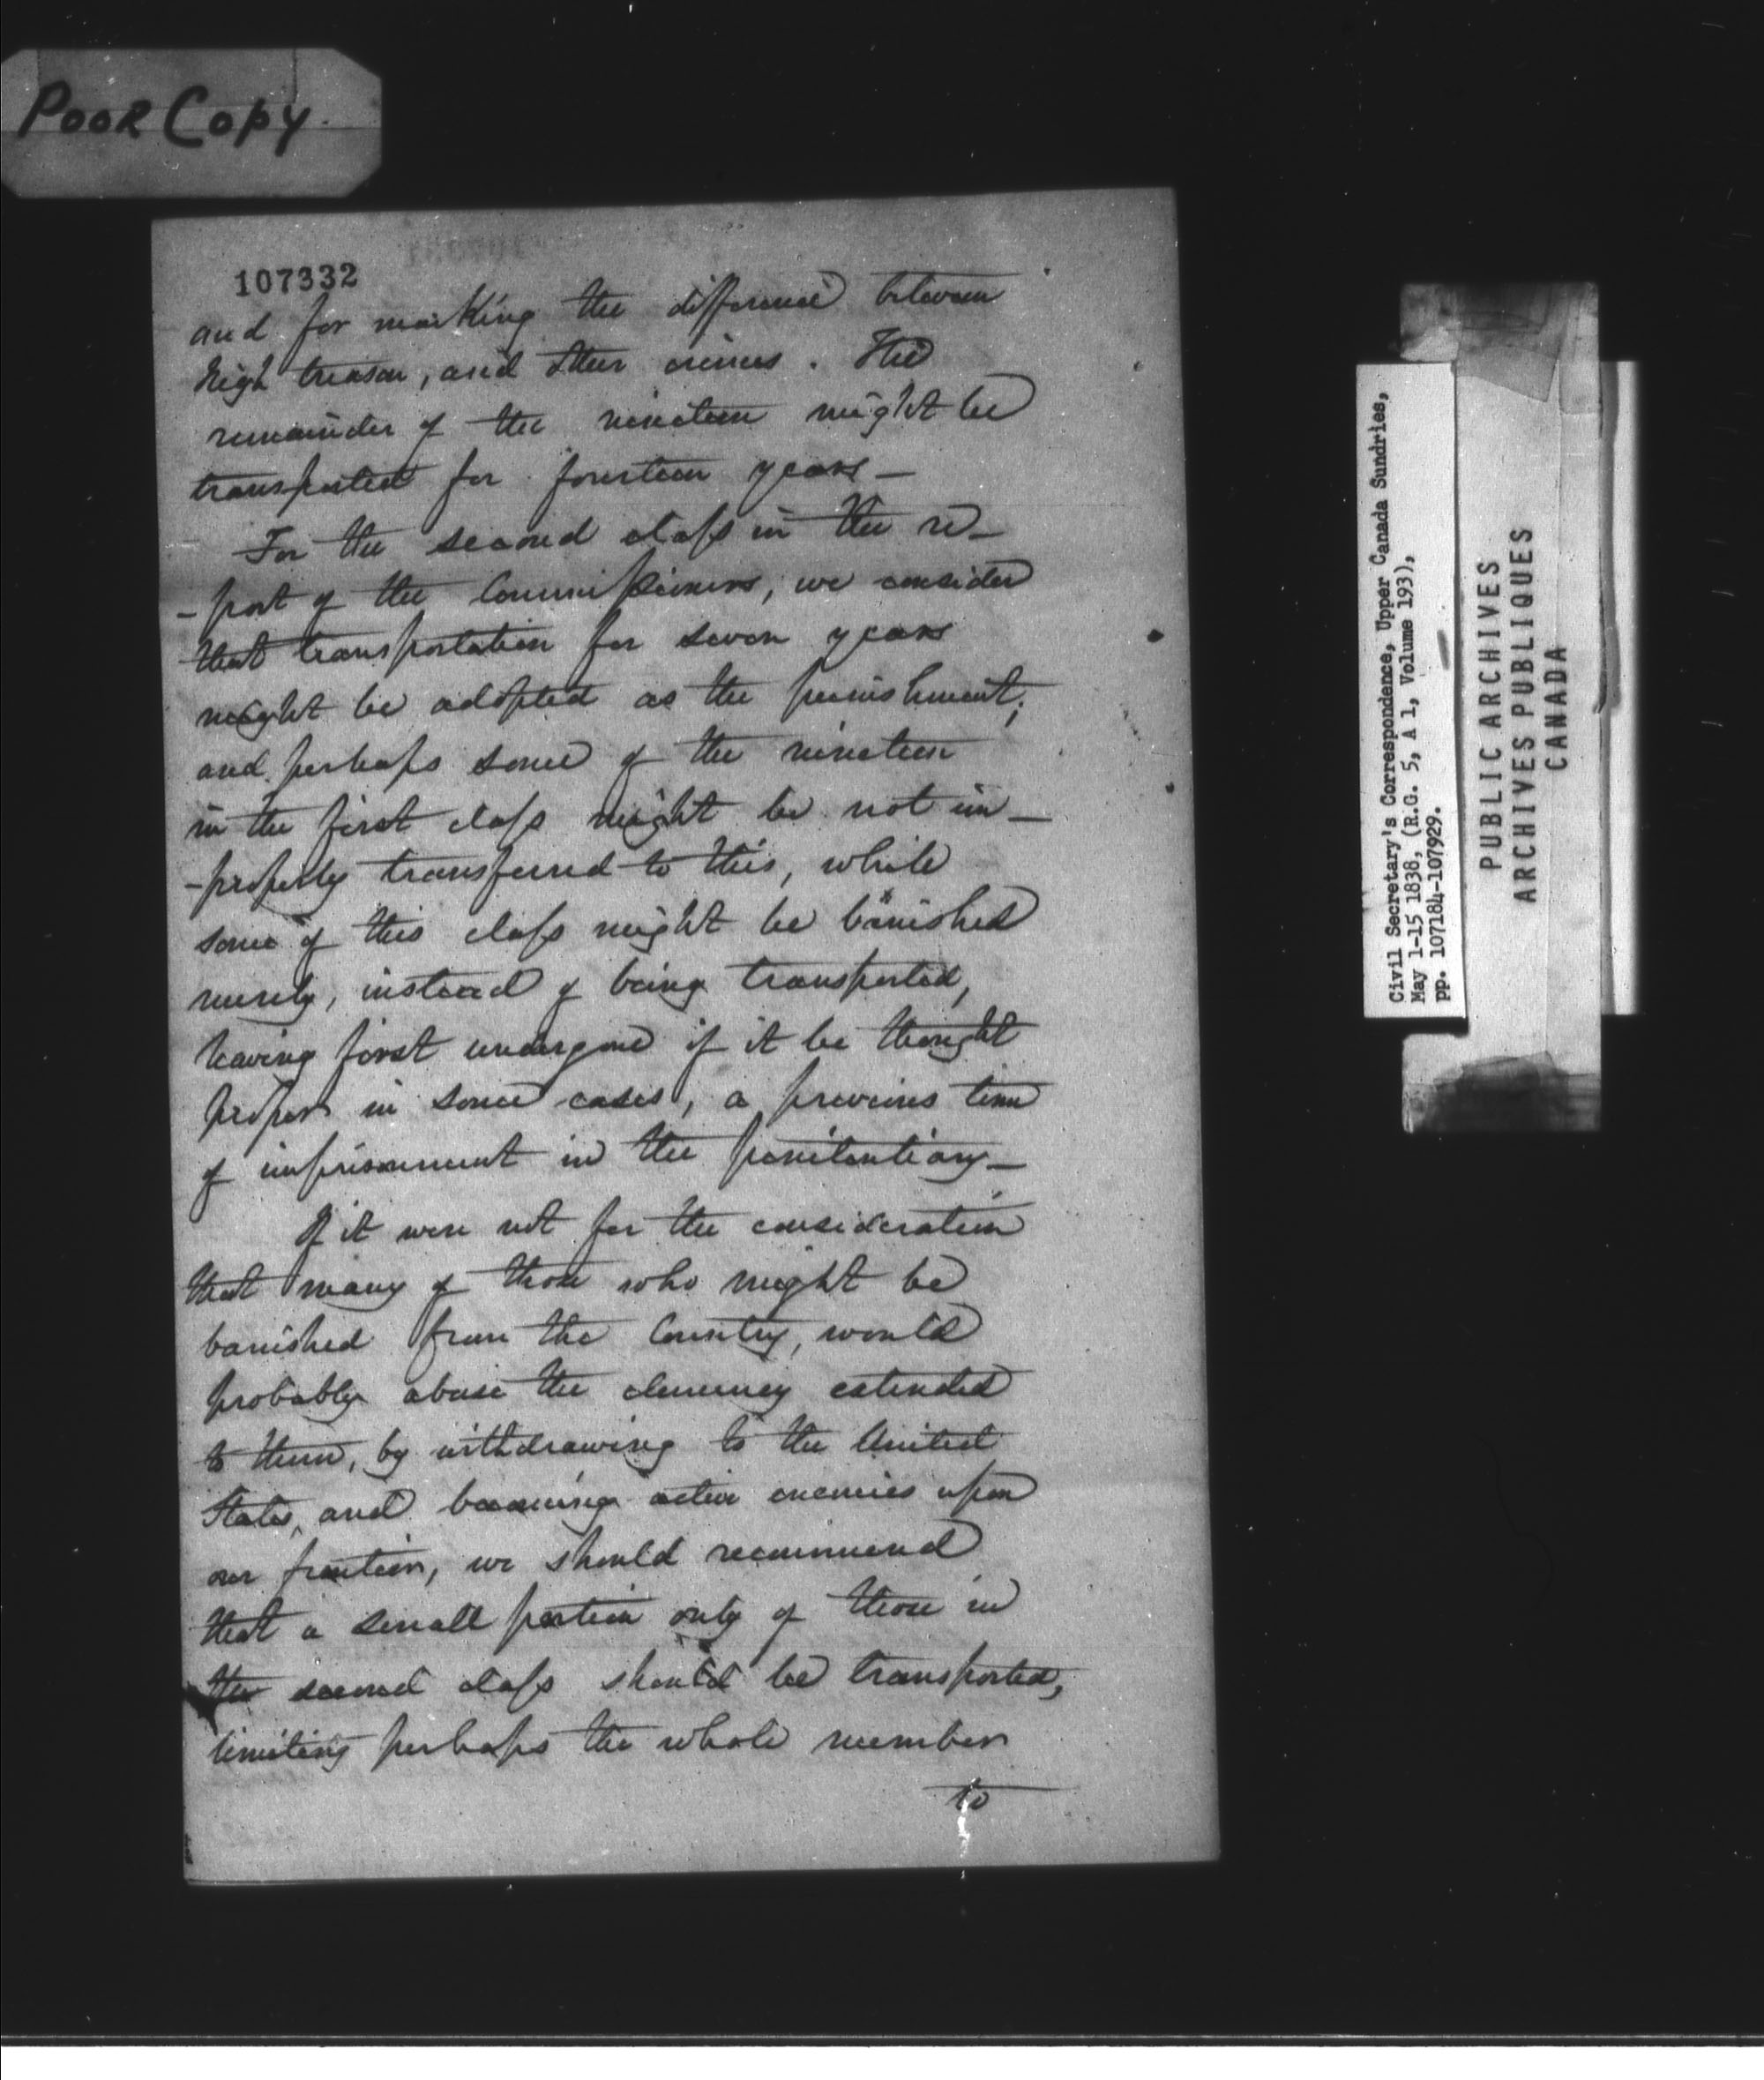 POOR COPY.
107332
and for marking the difference between
high treason, and other crimes. The
remainder of the nineteen might be
transported for fourteen years—
For the second class in the re-
-port of the Commissioners, we consider
that transportation for seven years
might be adopted as the punishment;
and perhaps some of the nineteen
in the first class might be not im-
-properly transferred to this, while
some of this class might be banished
merely, instead of being transported,
having first undergone if it be thought
proper in some cases, a previous time
of imprisonment in the penitentiary—
If it were not for the consideration
that many of those who might be
banished from the Country, would
probably abuse the clemency extended
to them, by withdrawing to the United
States, and becoming active enemies upon
our frontier, we should recommend
that a small portion only of those in
the second class should be transported,
limiting perhaps the whole number
to
Civil Secretary's Correspondence, Upper Canada Sundries,
May 1-15 1838, (R.G. 5, A 1, Volume 193),
pp. 107184-107929.
PUBLIC ARCHIVES
ARCHIVES PUBLIQUES
CANADA